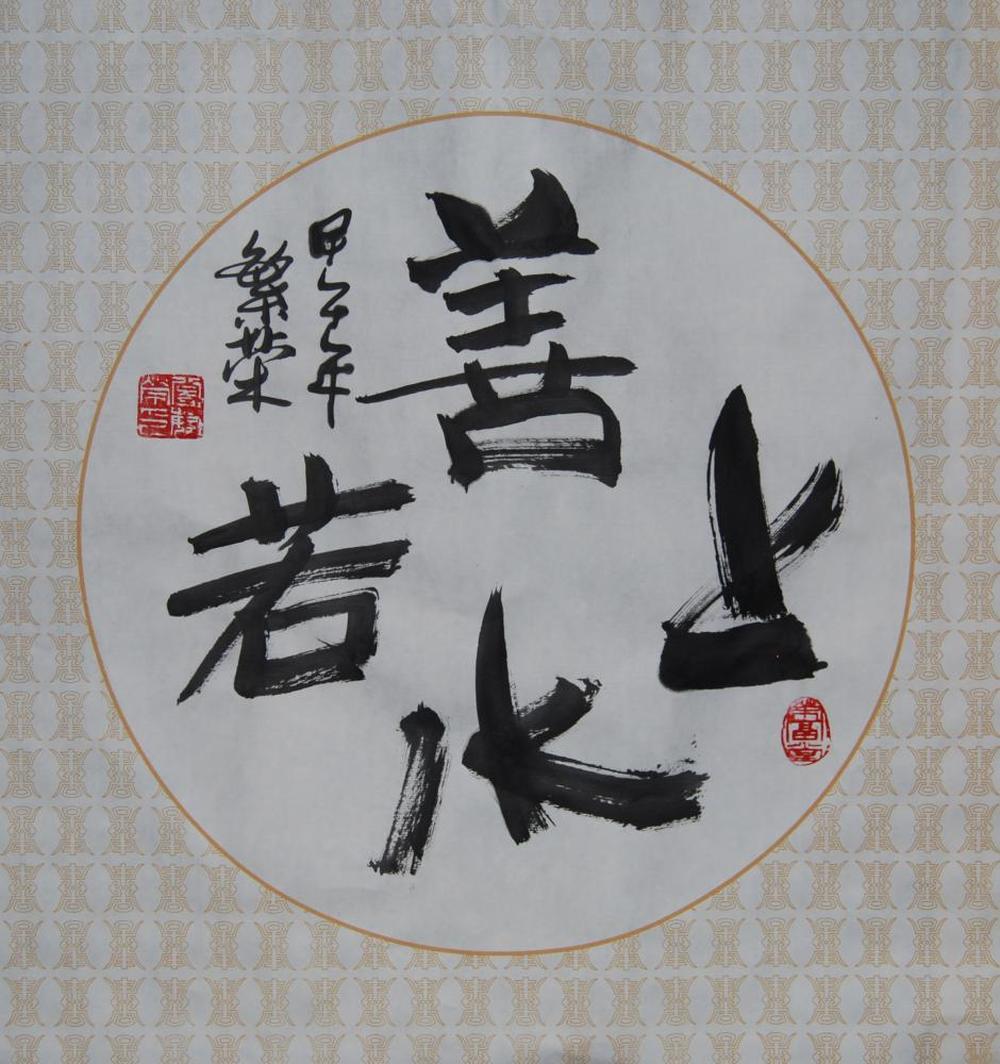 上善若水
甲午年
繁荣